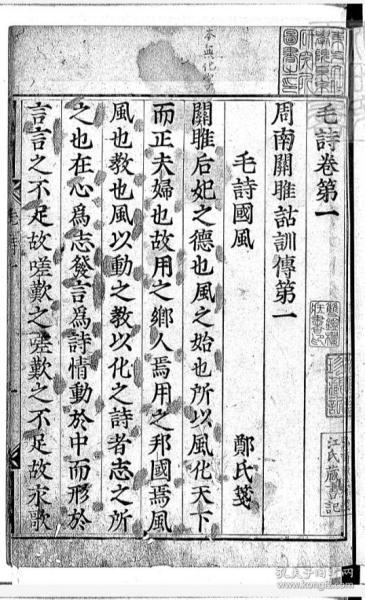 毛詩卷第一
周南關雎詁訓傳第一
毛詩國風　鄭氏箋
關雎后妃之德也風之始也所以風化天下
而正夫婦也故用之鄉人焉用之邦國焉風
風也教也風以動之教以化之詩者志之所
之也在心爲志發言爲詩情動於中而形於
言言之不足故嗟歎之嗟歎之不足故永歌
江氏藏書記
孔夫子旧书网